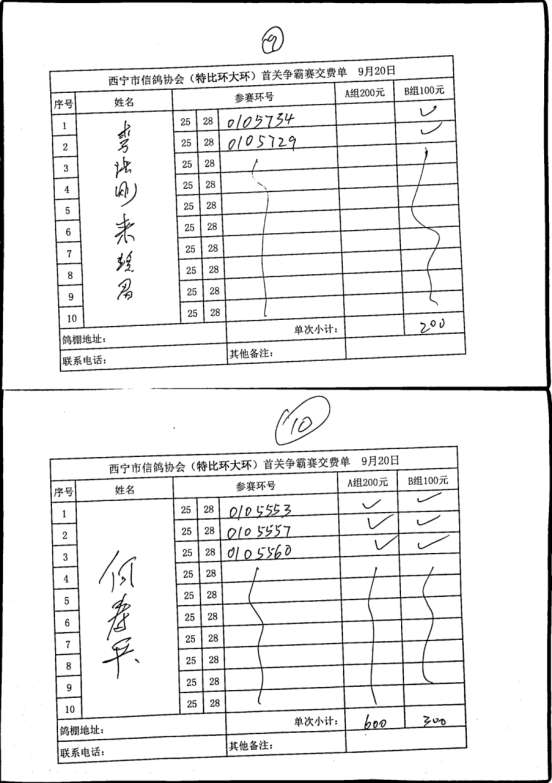 9
西宁市信鸽协会（特比环大环）首关争霸赛交费单 9月20日
序号 姓名 参赛环号 A组200元 B组100元
1 25 28 0105734 ✓
2 25 28 0105729 ✓
3 25 28
4 25 28
5 25 28
6 25 28
7 25 28
8 25 28
9 25 28
10 25 28
鸽棚地址： 单次小计： 200
联系电话： 其他备注：
10
西宁市信鸽协会（特比环大环）首关争霸赛交费单 9月20日
序号 姓名 参赛环号 A组200元 B组100元
1 25 28 0105553 ✓ ✓
2 25 28 0105557 ✓ ✓
3 25 28 0105560 ✓ ✓
4 25 28
5 25 28
6 25 28
7 25 28
8 25 28
9 25 28
10 25 28
何寿兵
鸽棚地址： 单次小计： 600 300
联系电话： 其他备注：